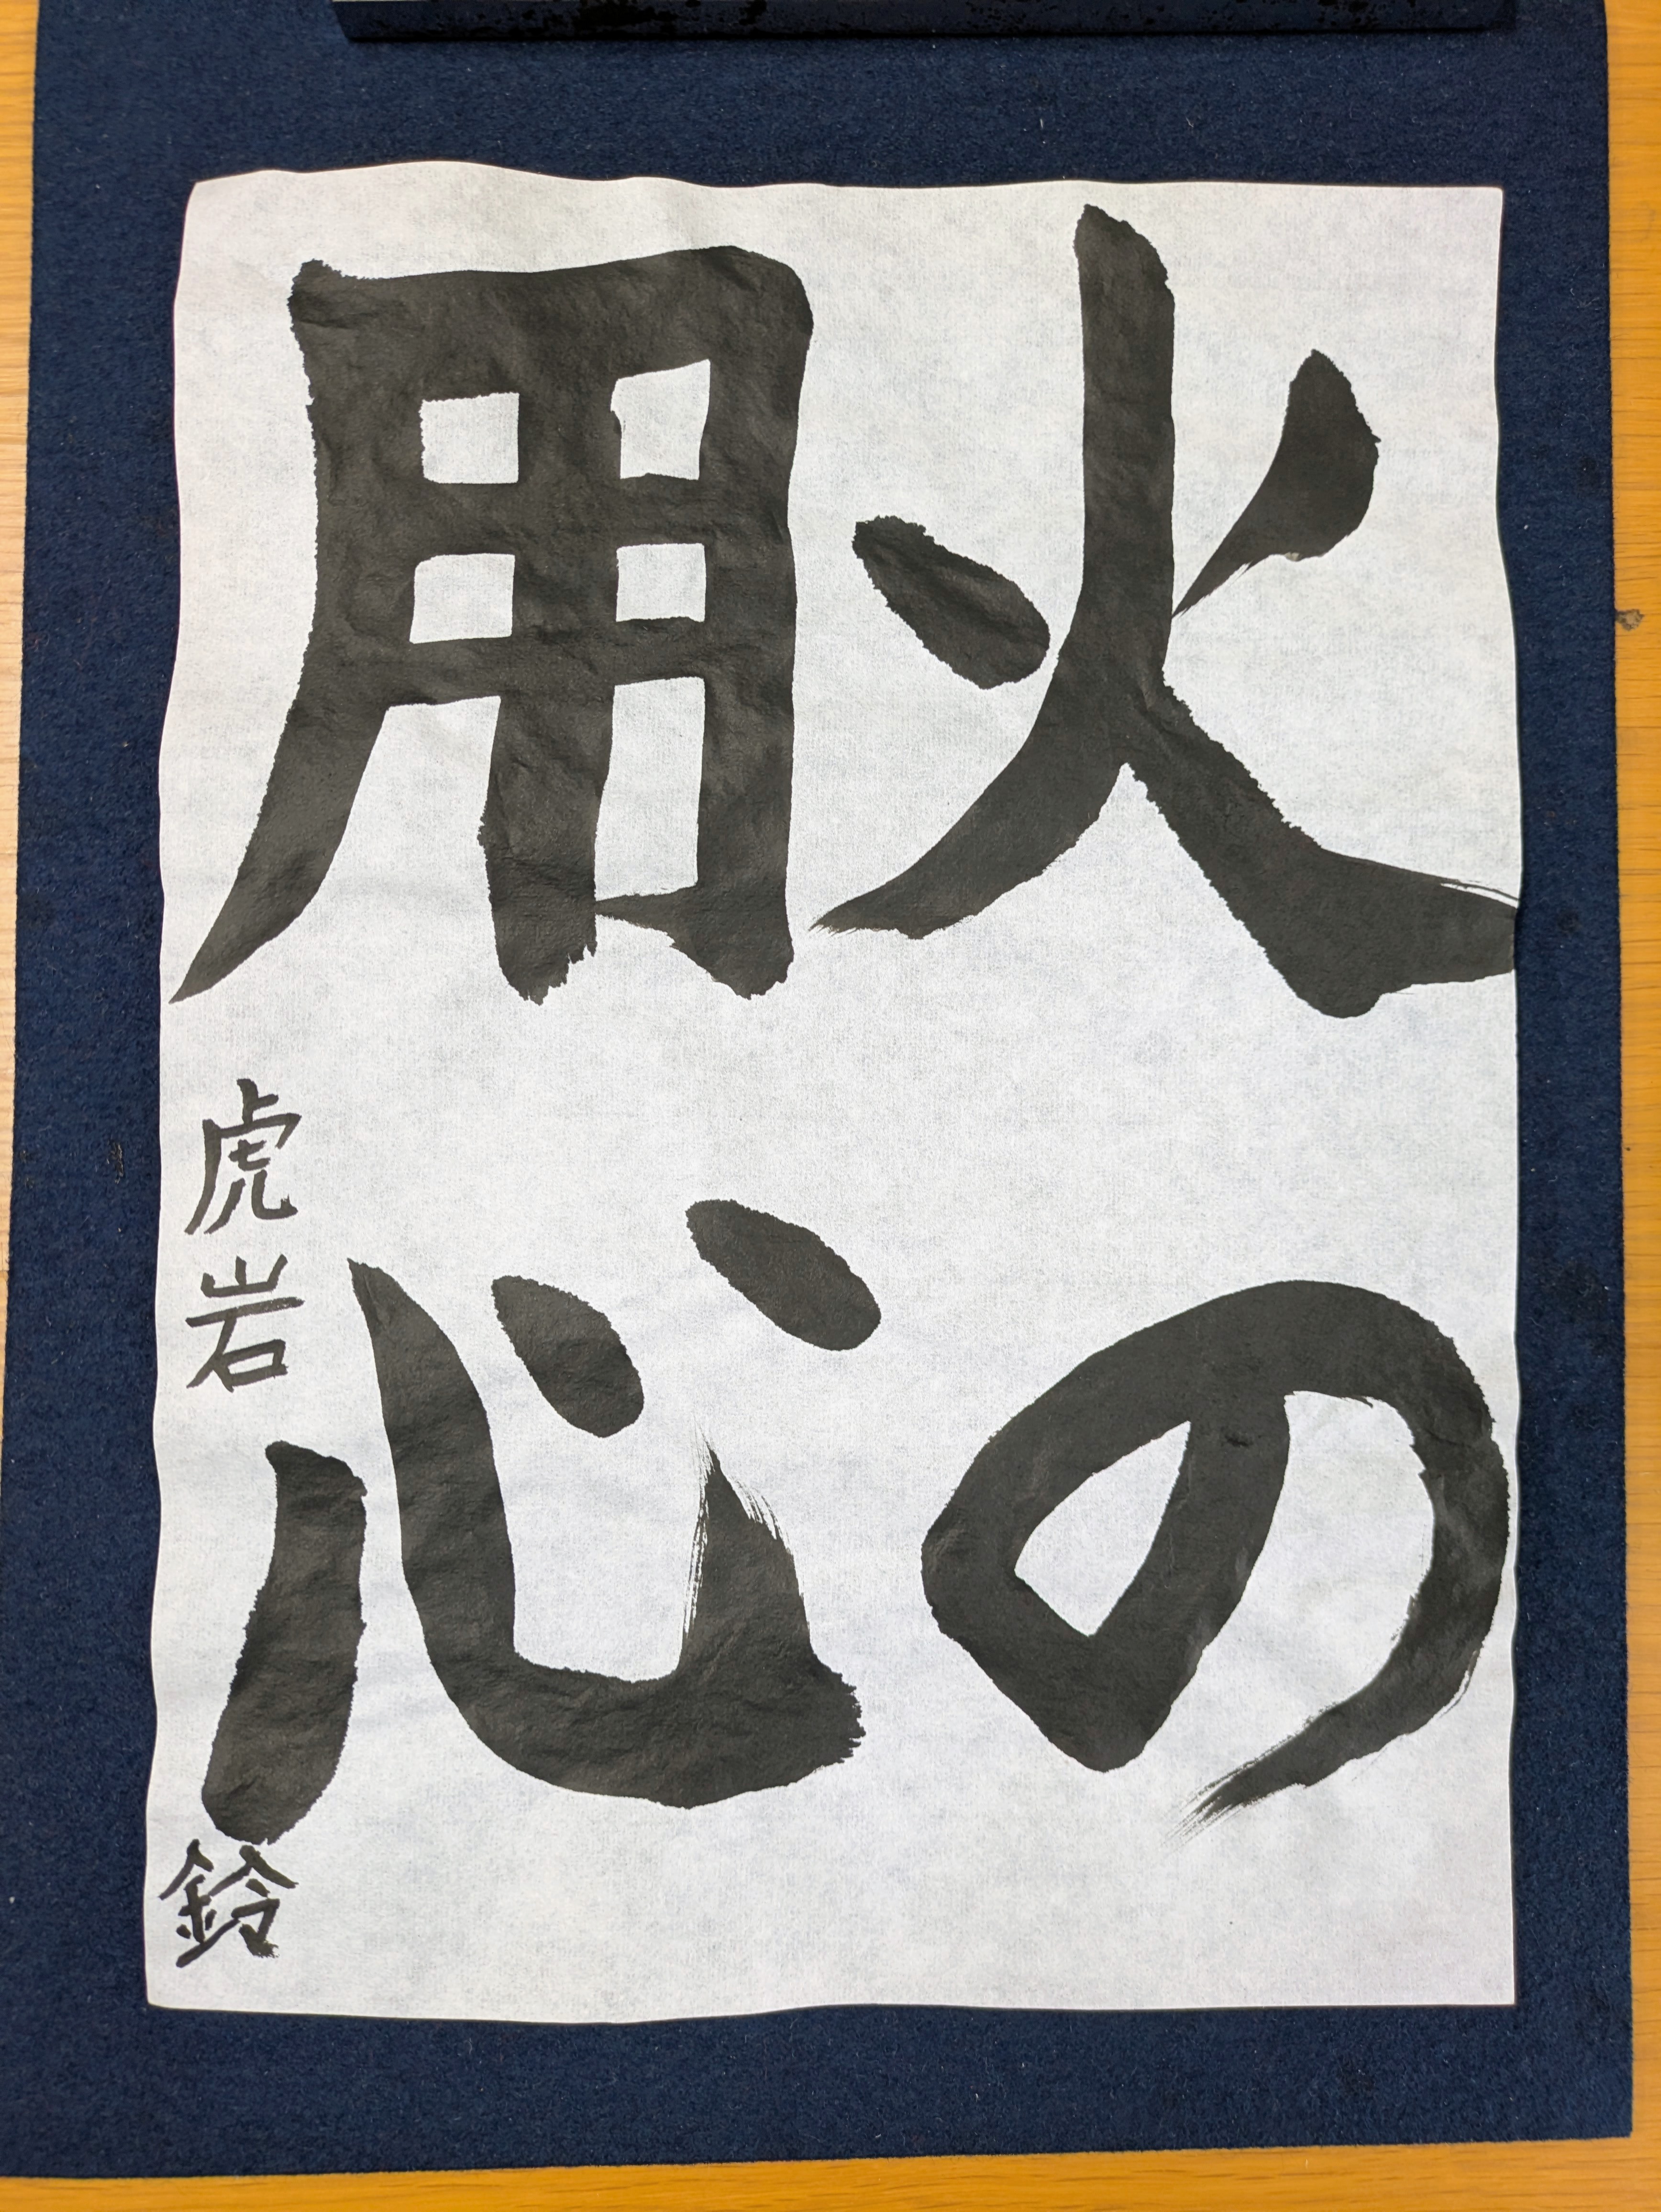 火の
用心
虎岩 鈴